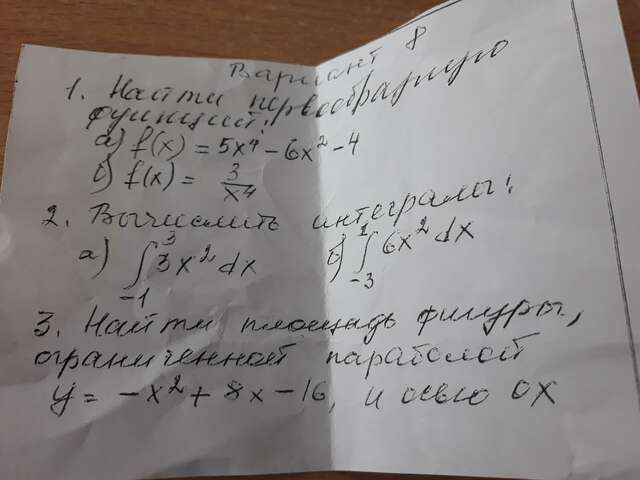 Вариант 8
1. Найти первообразную
функций:
а) f(x) = 5x⁴ - 6x² - 4
б) f(x) = 3/x⁴
2. Вычислить интегралы:
а) ∫₋₁³ 3x² dx б) ∫₋₃¹ 6x² dx
3. Найти площадь фигуры,
ограниченной параболой
y = -x² + 8x - 16, и осью OX